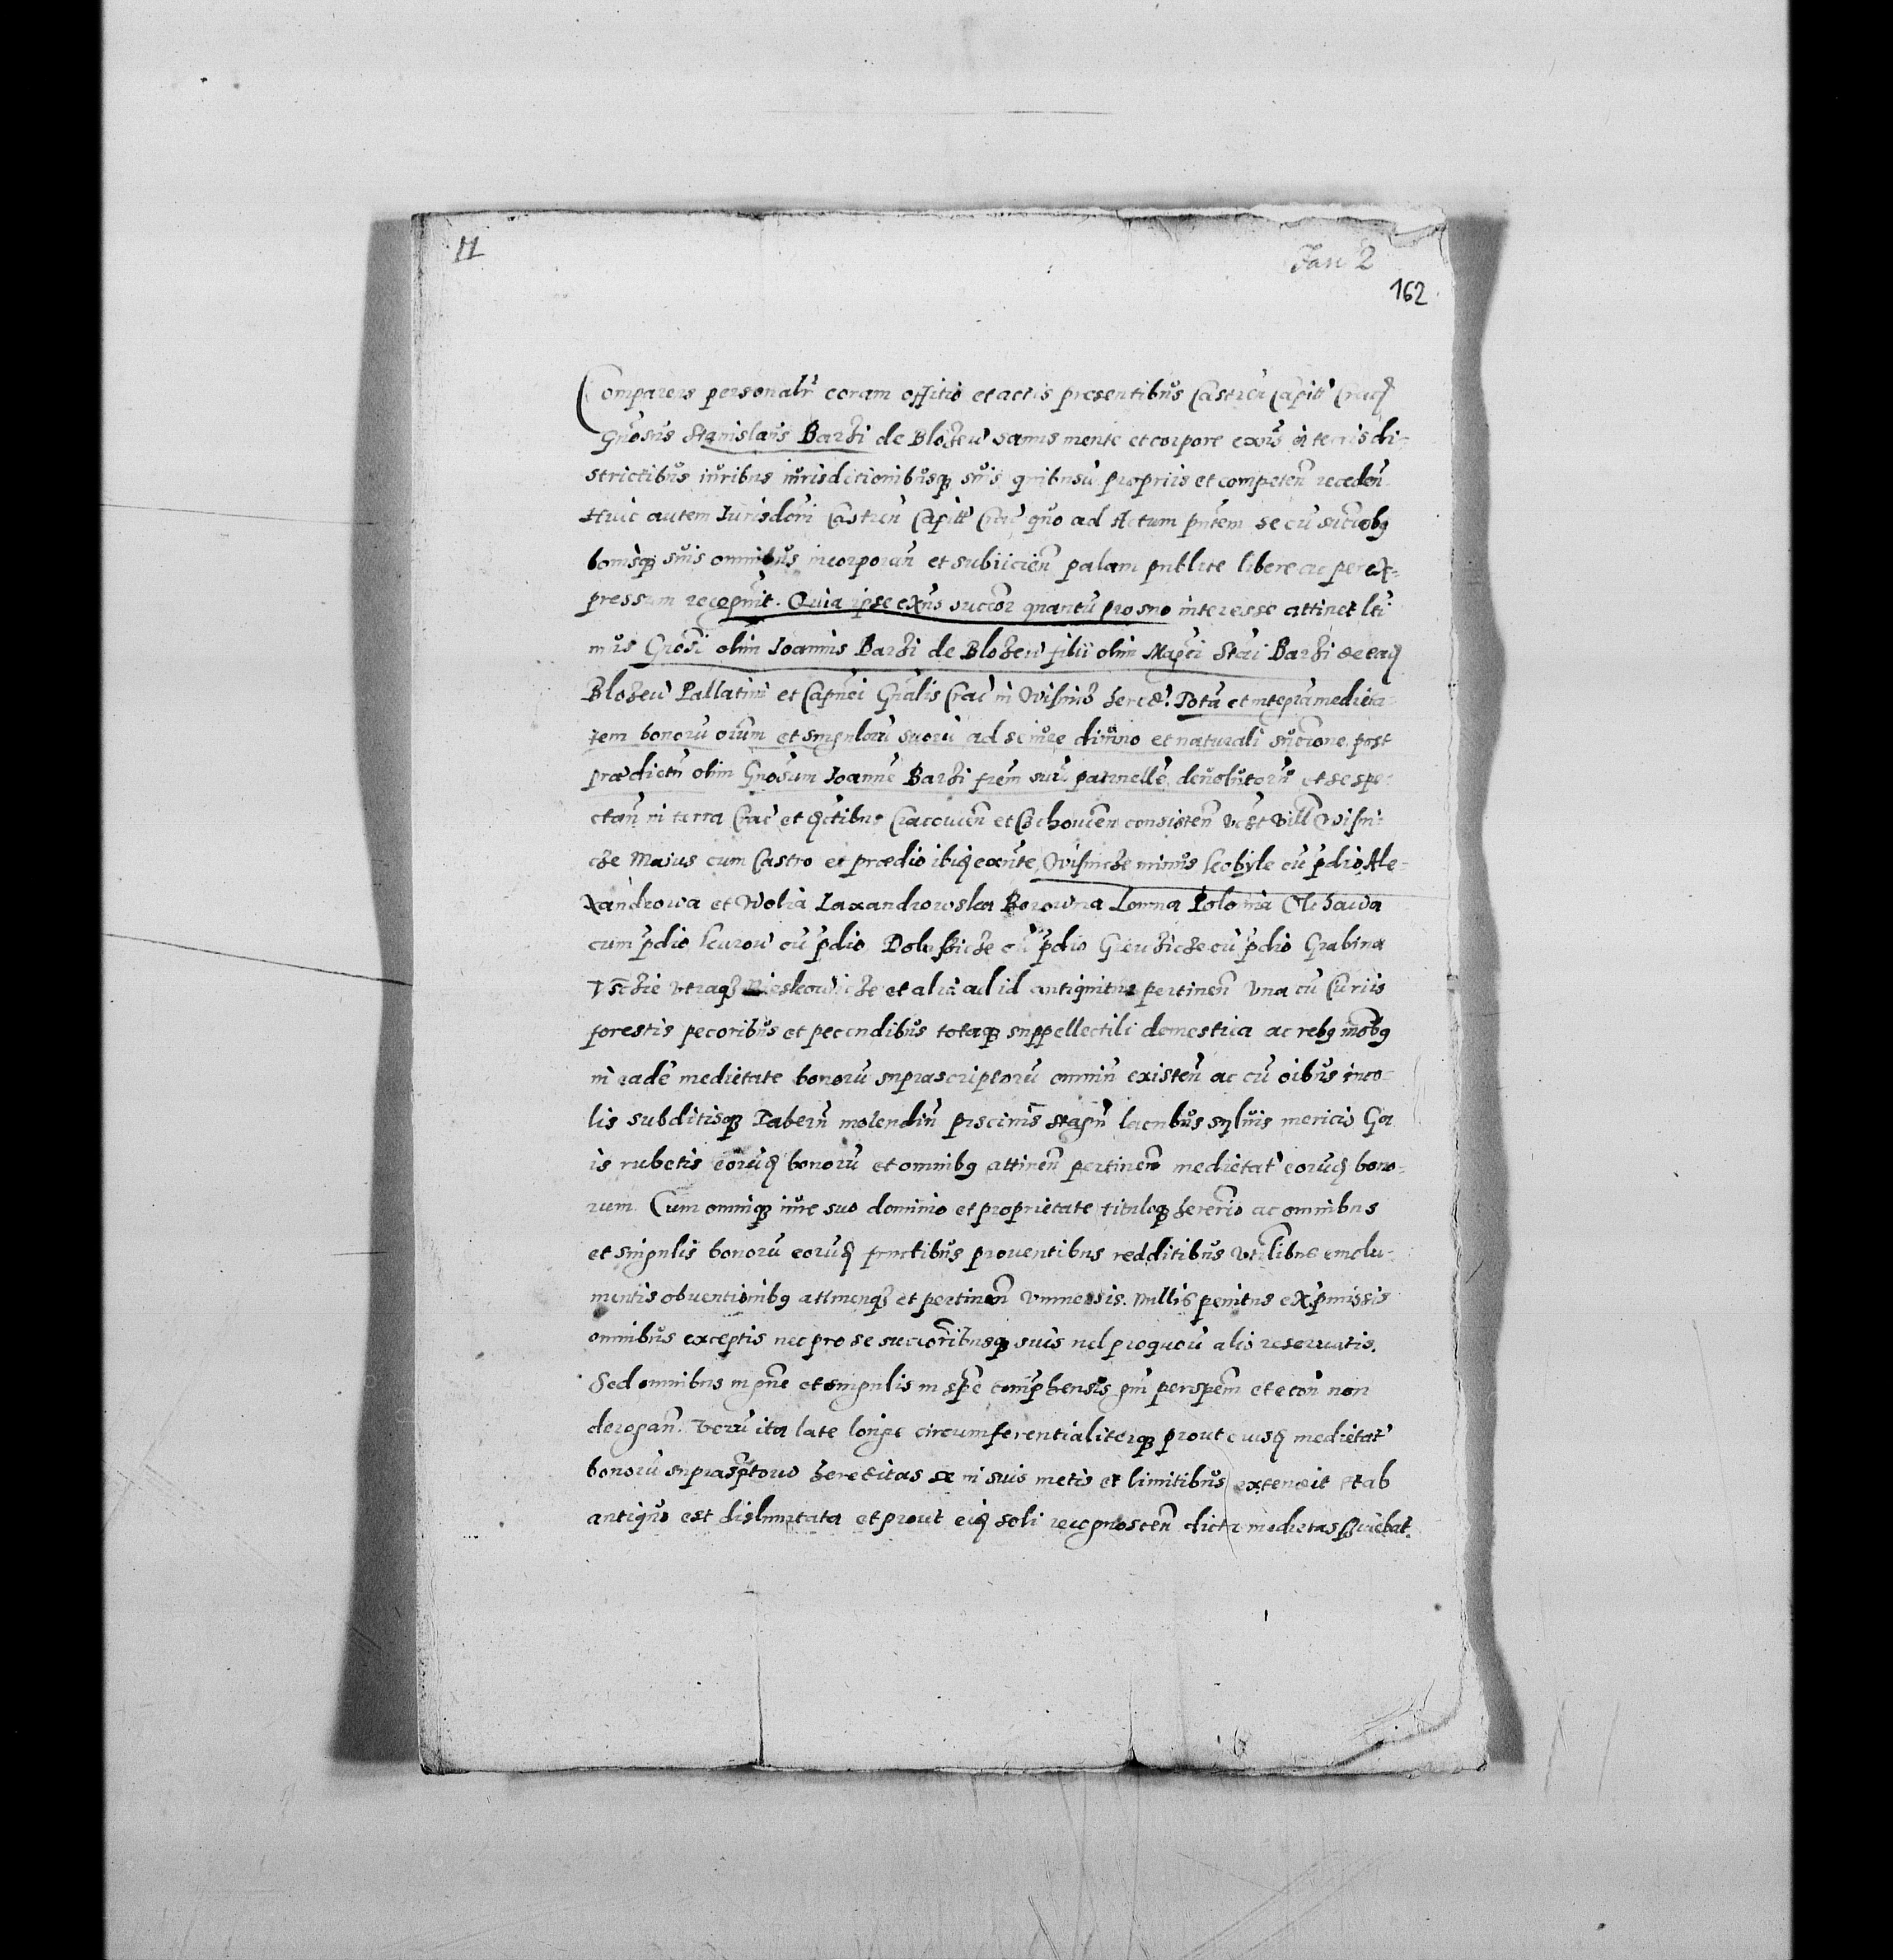 11
Jan 2
162
Comparens personalr coram offitio et actis presentibus Castren Capitl Crac
Gnosus Stanislaus Barzi de Blozew sanus mente et corpore exns a terris di-
strictibus iuribus iurisdictionibusq suis quibusu propriis et competen receden
Huic autem Iurisdoni Castren Capitl Crac quo ad Actum pntem se cu succrobq
bonisq suis omnibus incorporan et subiicien palam publice libere ac per ex-
pressum recognuit. Quia ipse exns succor quantu pro suo interesse attinet lti-
mus Gnosi olim Joannis Barzi de Blozew filii olim Magci Stai Barzi de eadq
Blozew Pallatini et Capnei Gnalis Crac in Wisnicz hered. Tota et integra medieta-
tem bonoru oium et singuloru suoru ad se iure diuino et naturali succione post
prædictu olim Gnosum Joanne Barzi frem suu patruelle deuolutoru et se spe-
ctan in terra Crac et dctibus Cracouien et Czchouien consisten vczt vill Wisni-
cze Maius cum Castro et prædio ibiq exnte, Wisnicze minus Kobyle cu pdio, Ale-
xandrowa et Wolia Laxandrowska Borowna Lomna Polomia Olchawa
cum pdio Kurow cu pdio Doluszicze cu pdio Gierczicze cu pdio Grabina
Usczie utraq Nieskowicze et alia ad id antiquitus pertinen Una cu Curiis
forestis pecoribus et pecudibus totaq suppellectili domestica ac rebq mobq
in eade medietate bonoru suprascriptoru omniu existen ac cu oibus inco-
lis subditisq Tabern molendin piscinis stagn lacubus syluis mericis Ga
is rubetis eoruq bonoru et omnibq attinen pertinen medietat eoruq bono-
rum. Cum omniq iure suo dominio et proprietate tituloq hererio ac omnibus
et singulis bonoru eoruq fructibus prouentibus redditibus utilibus emolu-
mentis obuentionibq attinenq et pertinen Uniuersis. Nullis penitus ex pmissis
omnibus exceptis nec pro se succoribusq suis uel pro quou alio reseruatis.
Sed omnibus in gne et singulis in spe comphensis gn per spem et econ non
derogan. Veru ita late longe circumferentialiterq prout eiusd medietat
bonoru suprasptoru hereditas se in suis metis et limitibus extendit et ab
antiquo est dislimitata et prout eiq soli recognoscen dicta medietas seruiebat.